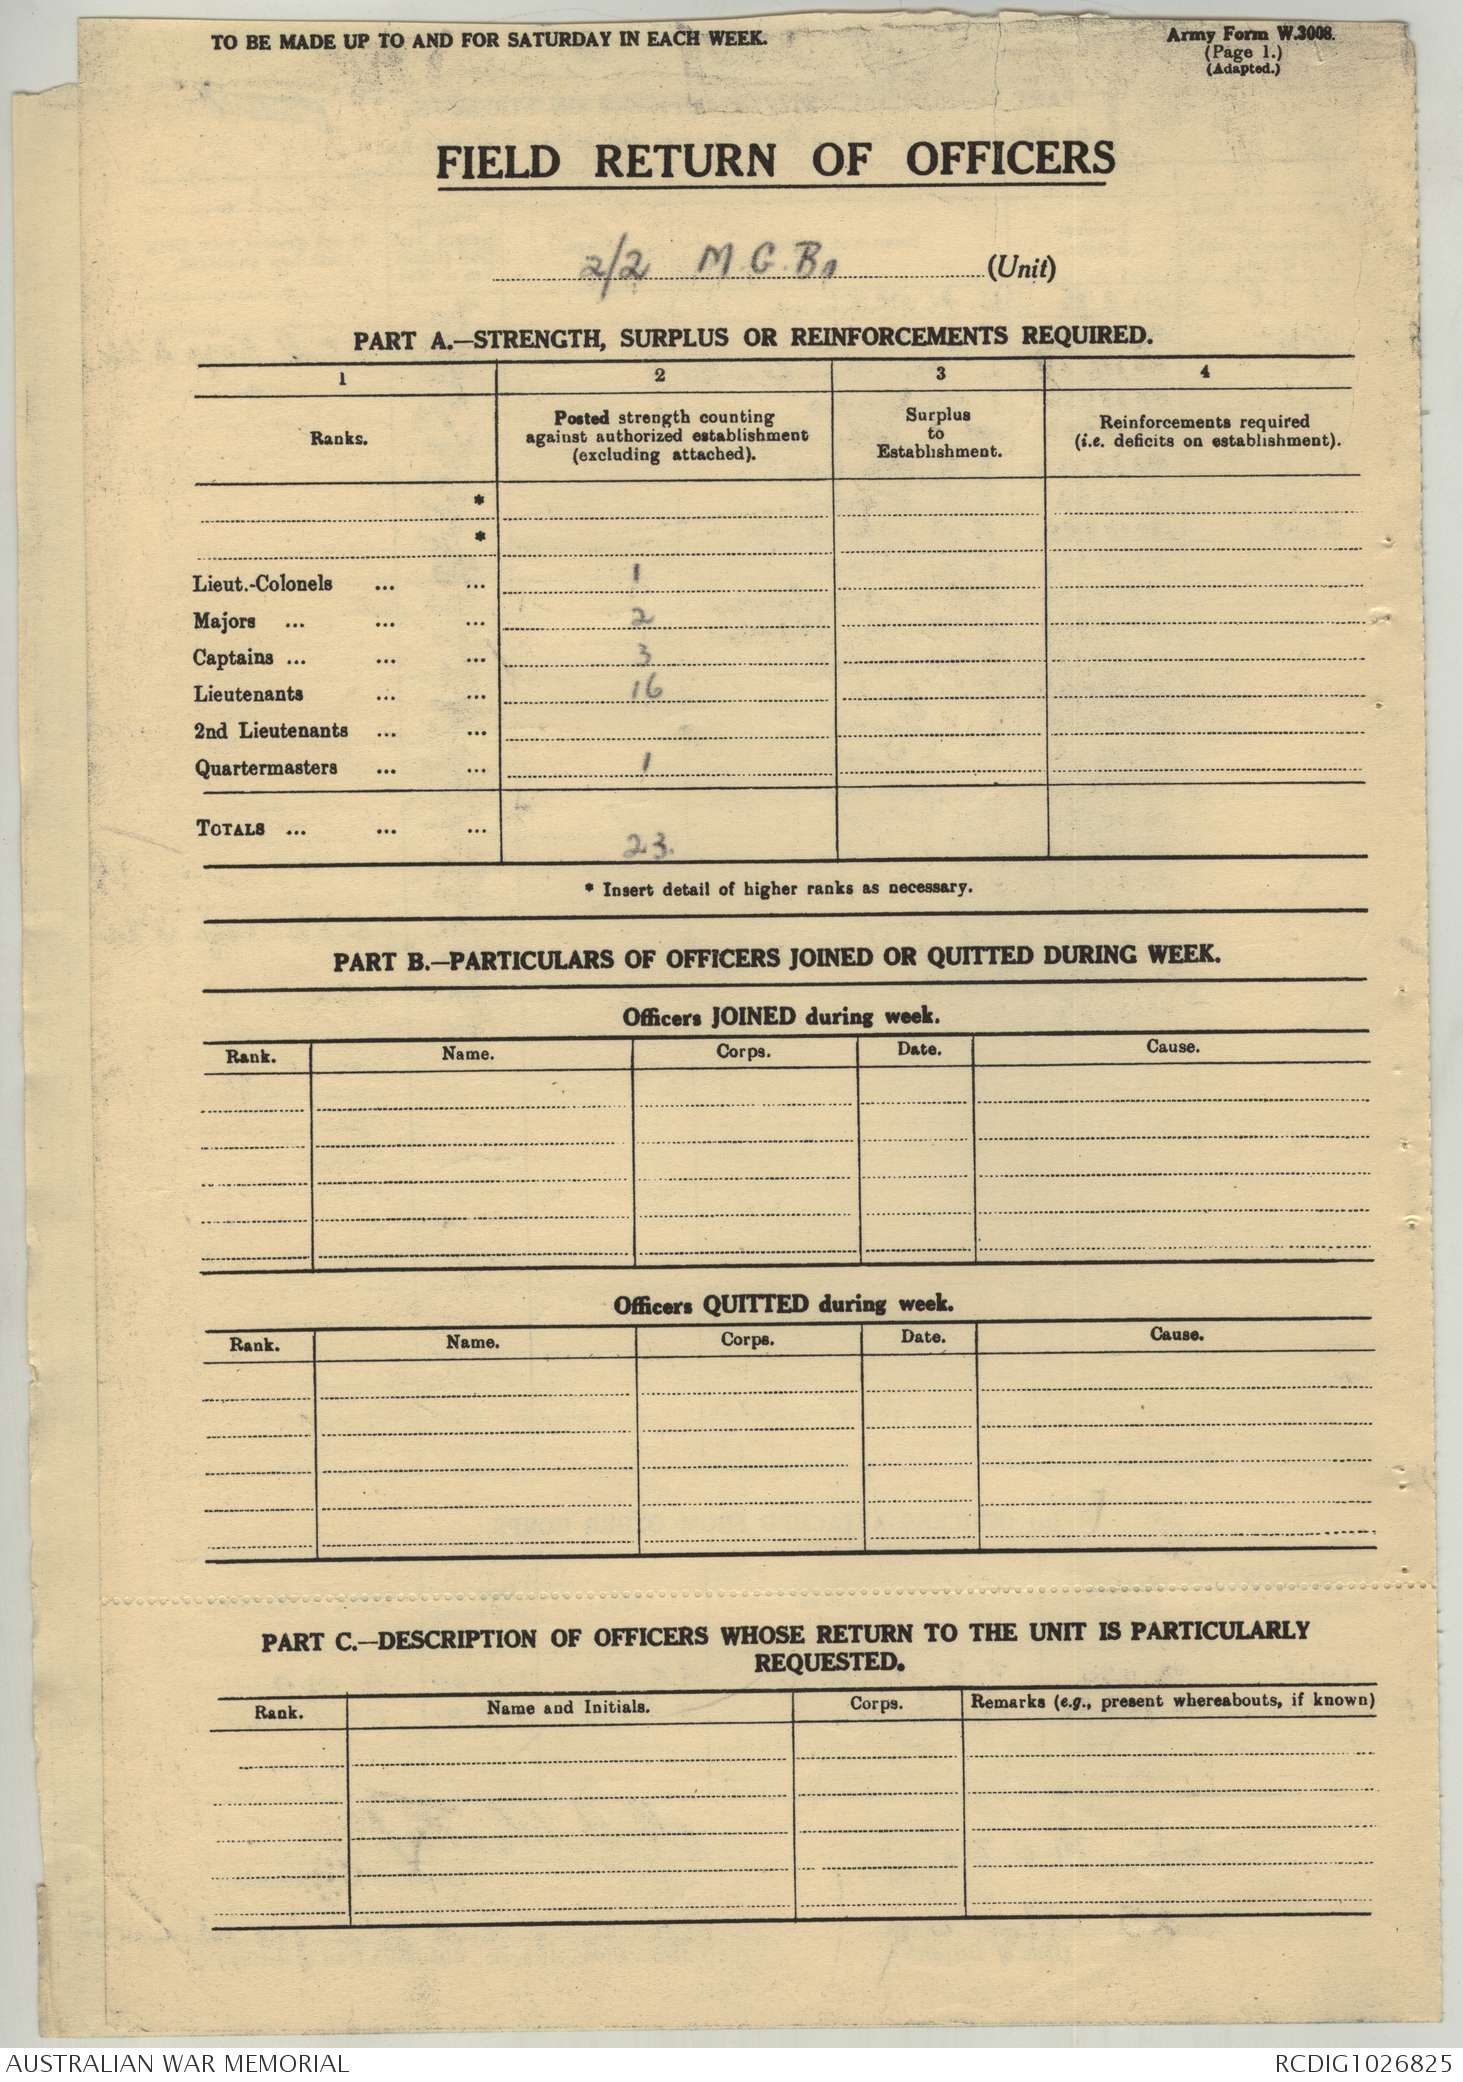 TO BE MADE UP TO AND FOR SATURDAY IN EACH WEEK.
Army Form W.3008.
(Page 1.)
(Adapted.)
FIELD RETURN OF OFFICERS
2/2 M G Bn (Unit)
PART A.—STRENGTH, SURPLUS OR REINFORCEMENTS REQUIRED.
1 2 3 4
Ranks.
Posted strength counting
against authorized establishment
(excluding attached).
Surplus
to
Establishment.
Reinforcements required
(i.e. deficits on establishment).
*
*
Lieut.-Colonels ... ... 1
Majors ... ... ... 2
Captains ... ... ... 3
Lieutenants ... ... 16
2nd Lieutenants ... ...
Quartermasters ... ... 1
TOTALS ... ... ... 23.
* Insert detail of higher ranks as necessary.
PART B.—PARTICULARS OF OFFICERS JOINED OR QUITTED DURING WEEK.
Officers JOINED during week.
Rank. Name. Corps. Date. Cause.
Officers QUITTED during week.
Rank. Name. Corps. Date. Cause.
PART C.—DESCRIPTION OF OFFICERS WHOSE RETURN TO THE UNIT IS PARTICULARLY
REQUESTED.
Rank. Name and Initials. Corps. Remarks (e.g., present whereabouts, if known)
AUSTRALIAN WAR MEMORIAL
RCDIG1026825